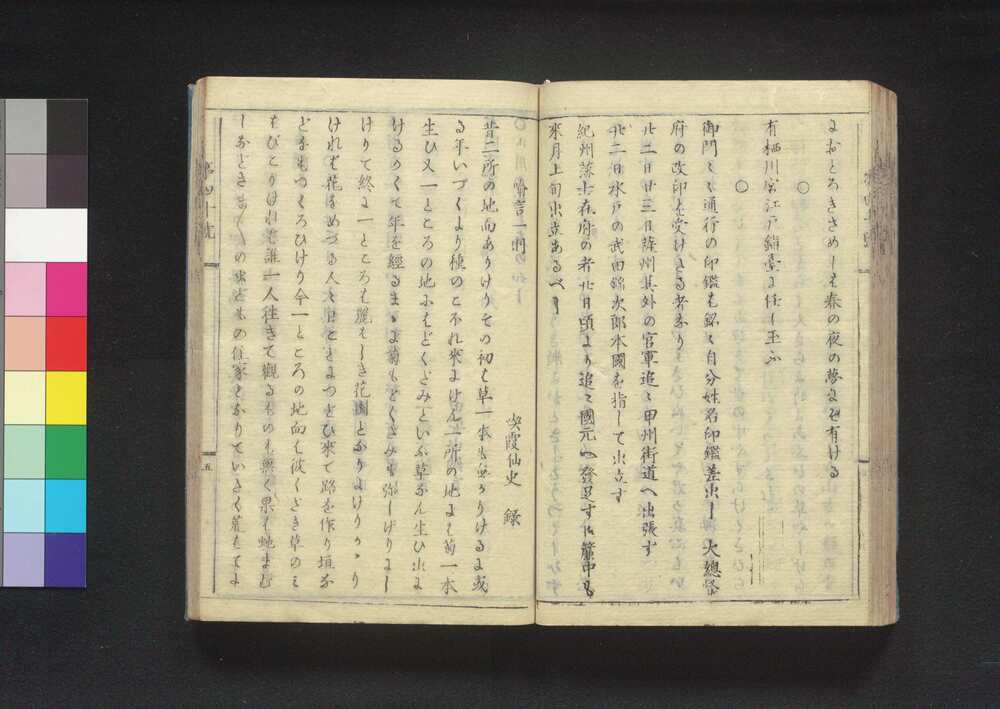 におとろきさめしも春の夜の夢にぞ有ける
○
有栖川宮江戸鎮臺に任し玉ふ
○
御門々々通行の印鑑も銘々自分姓名印鑑差出し大總督
府の改印を受けたる者なり
廿二日廿三日諸州其外の官軍追々甲州街道へ出張す
廿二日水戸の武田錦次郎本國を指して出立す
紀州藩士在府の者廿日頃より追々國元へ發足す 簾中も
來月上旬出立あるべし
寓言一則
喫霞仙史 録
昔二所の地面ありけりその初は草一本も無かりけるに或
る年いづくより種のこぼれ來にけん一所の地には菊一本
生ひ又一ところの地にはどくだみといふ草なん生ひ出に
けるかくて年を經るまゝに菊もどくだみも弥しげりにし
けりて終に一ところは麗はしき花園となりにけりかゝり
けれは花をめづる人々日ことにつどひ來て路を作り垣な
どをもつくろひけり今一ところの地面は彼くさき草のみ
はびこりければ誰一人往きて觀るものも無く果は蛇まむ
しなどさま〳〵の虫どもの住家となりていたく荒はてに
第四十號
五